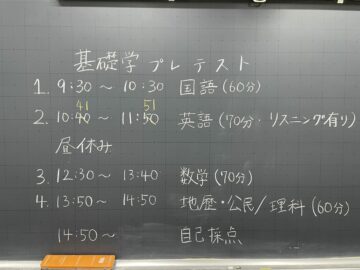 基礎学プレテスト
1. 9:30 〜 10:30 国語 (60分)
41 51
2. 10:40 〜 11:50 英語 (70分・リスニング有り)
昼休み
3. 12:30 〜 13:40 数学 (70分)
4. 13:50 〜 14:50 地歴・公民/理科 (60分)
14:50 〜 自己採点